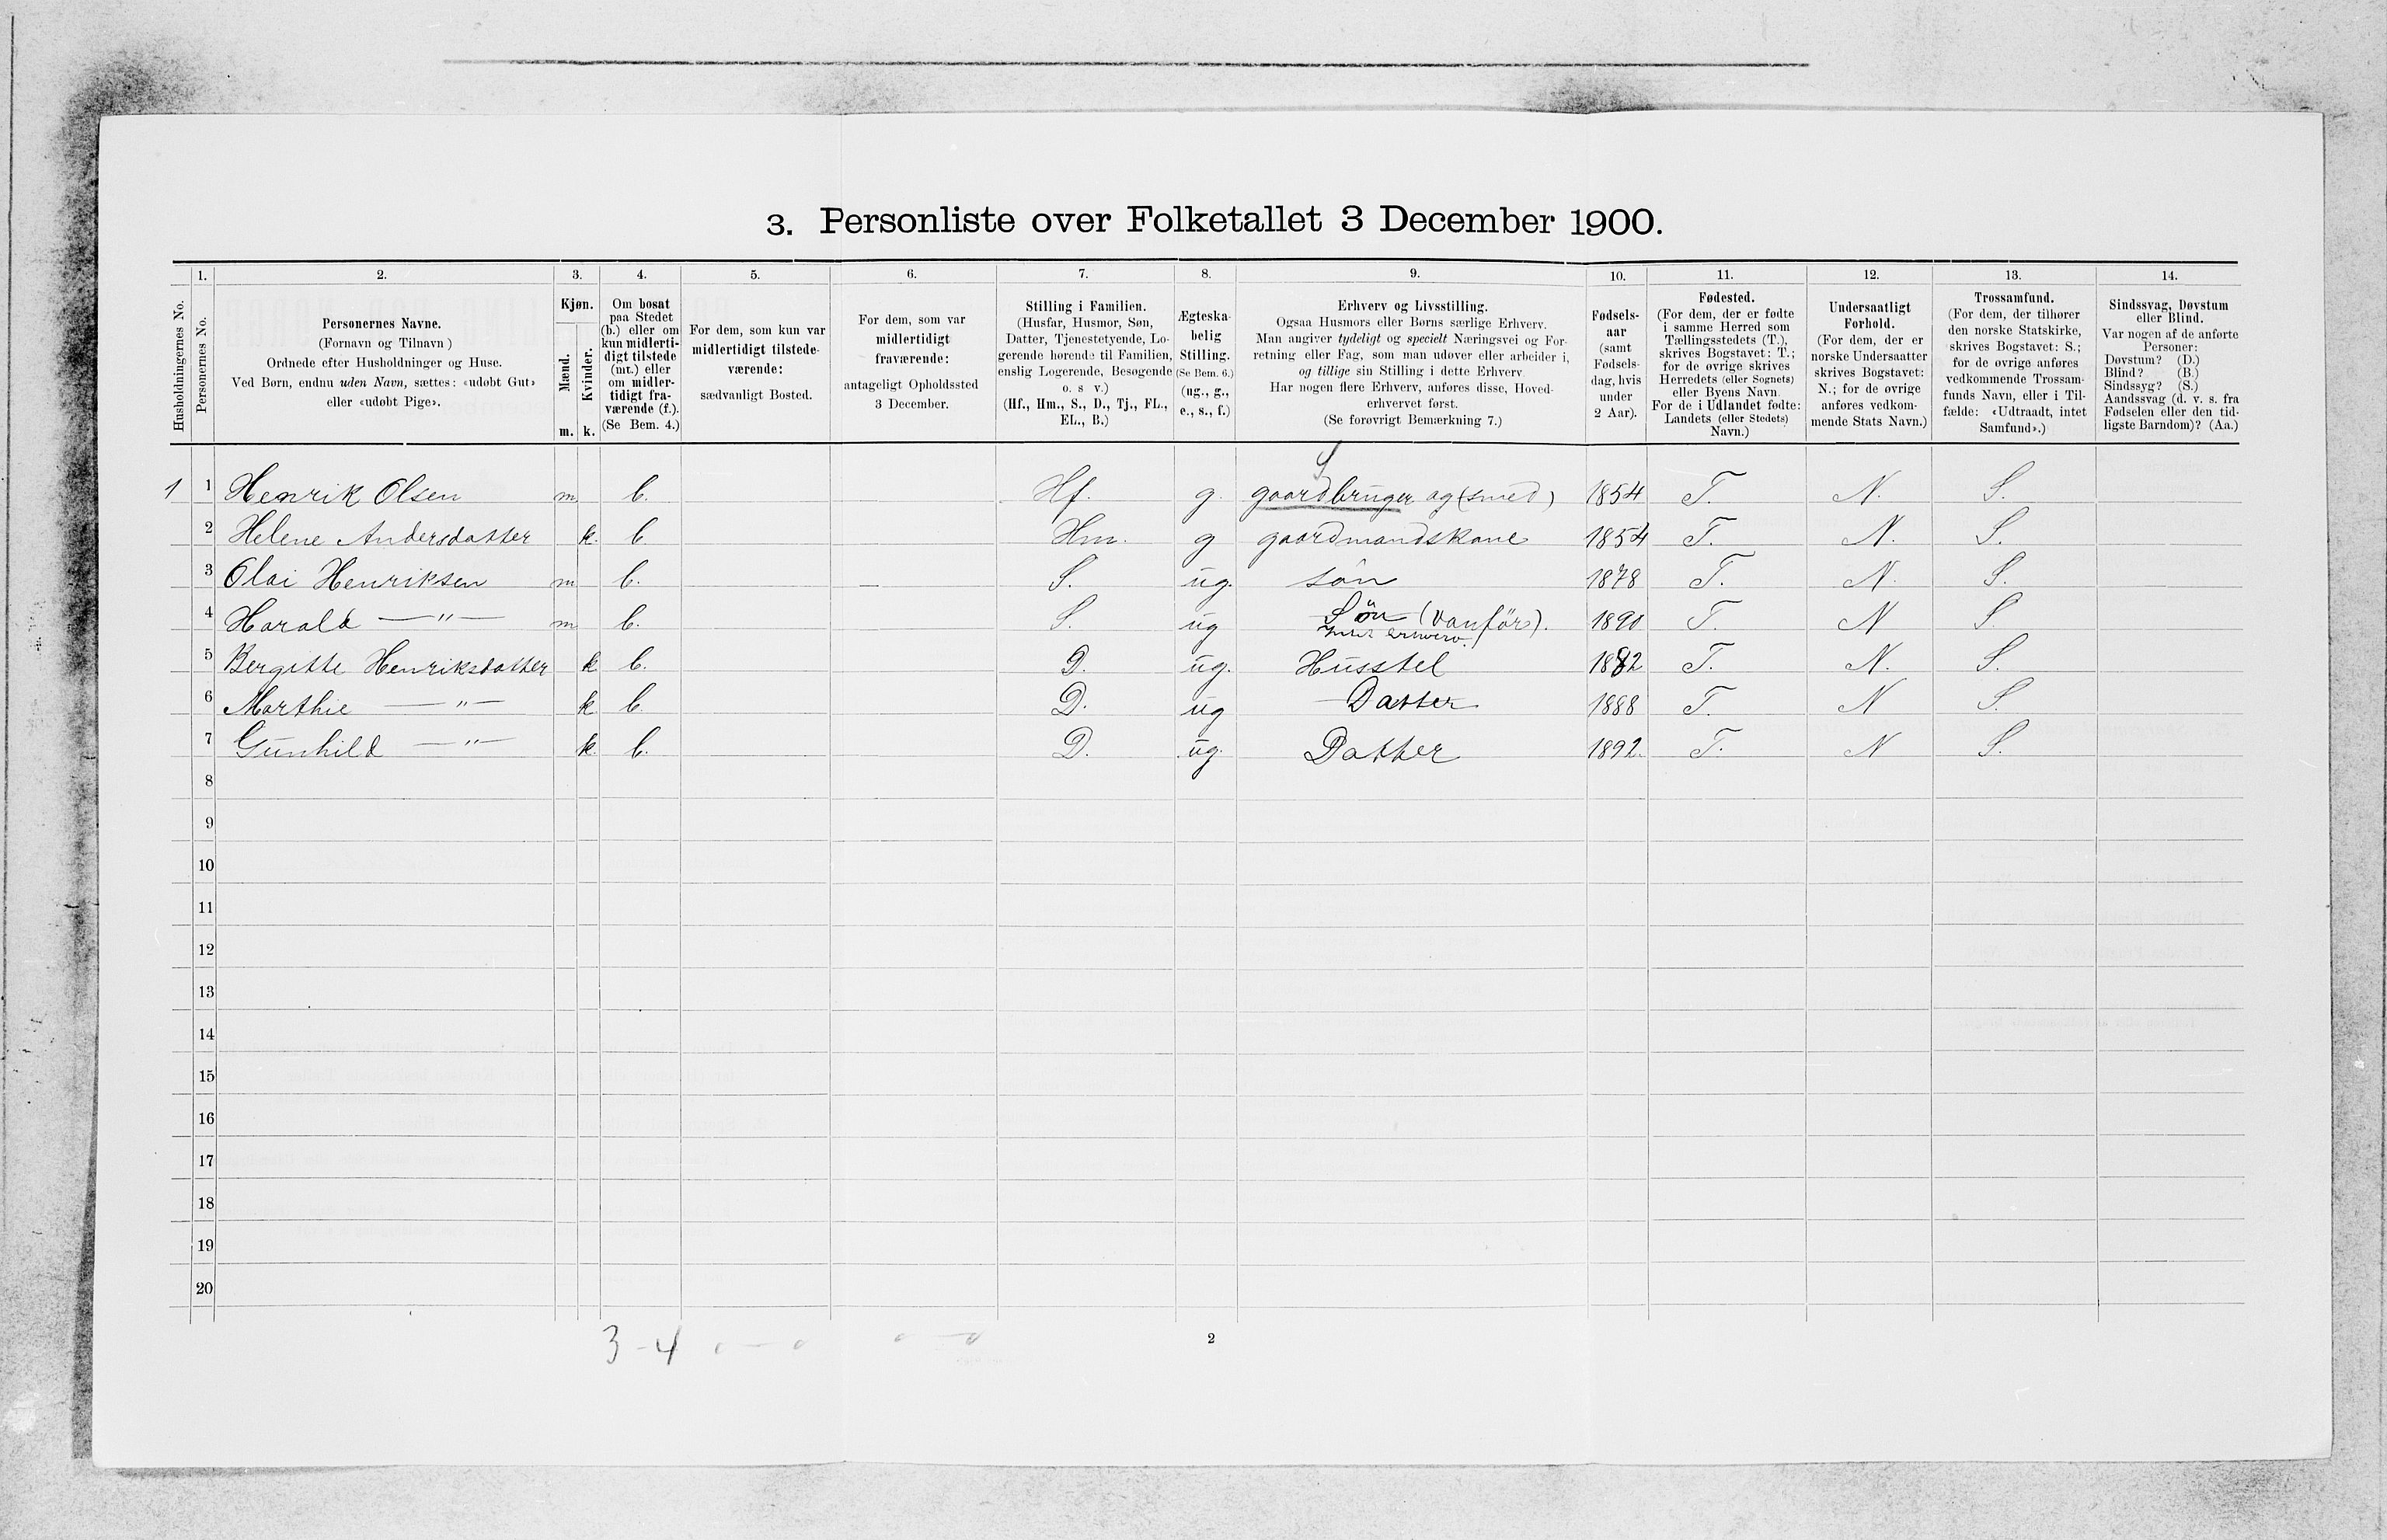 3. Personliste over Folketallet 3 December 1900.
1. 2. 3. 4. 5. 6. 7. 8. 9. 10. 11. 12. 13. 14.
Husholdningernes No.
Personernes No.
Personernes Navne.
(Fornavn og Tilnavn )
Ordnede efter Husholdninger og Huse.
Ved Børn, endnu uden Navn, sættes: «udøbt Gut»
eller «udøbt Pige».
Kjøn.
Mænd.
Kvinder.
m. k.
Om bosat
paa Stedet
(b.) eller om
kun midlerti-
digt tilstede
(mt.) eller
om midler-
tidigt fra-
værende (f.).
(Se Bem. 4.)
For dem, som kun var
midlertidigt tilstede-
værende:
sædvanligt Bosted.
For dem, som var
midlertidigt
fraværende:
antageligt Opholdssted
3 December.
Stilling i Familien.
(Husfar, Husmor, Søn,
Datter, Tjenestetyende, Lo-
gerende hørende til Familien,
enslig Logerende, Besøgende
o. s v.)
(Hf., Hm., S., D., Tj., FL.,
EL., B.)
Ægteska-
belig
Stilling.
(Se Bem. 6.)
(ug., g.,
e., s., f.)
Erhverv og Livsstilling.
Ogsaa Husmors eller Børns særlige Erhverv.
Man angiver tydeligt og specielt Næringsvei og For-
retning eller Fag, som man udøver eller arbeider i,
og tillige sin Stilling i dette Erhverv.
Har nogen flere Erhverv, anføres disse, Hoved-
erhvervet først.
(Se forøvrigt Bemærkning 7.)
Fødsels-
aar
(samt
Fødsels-
dag, hvis
under
2 Aar).
Fødested.
(For dem, der er fødte
i samme Herred som
Tællingsstedets (T.),
skrives Bogstavet: T.;
for de øvrige skrives
Herredets (eller Sognets)
eller Byens Navn.
For de i Udlandet fødte:
Landets (eller Stedets)
Navn.)
Undersaatligt
Forhold.
(For dem, der er
norske Undersaatter
skrives Bogstavet:
N.; for de øvrige
anføres vedkom-
mende Stats Navn.)
Trossamfund.
(For dem, der tilhører
den norske Statskirke,
skrives Bogstavet: S.;
for de øvrige anføres
vedkommende Trossam-
funds Navn, eller i Til-
fælde: «Udtraadt, intet
Samfund».)
Sindssvag, Døvstum
eller Blind.
Var nogen af de anførte
Personer:
Døvstum? (D.)
Blind? (B.)
Sindssyg? (S.)
Aandssvag (d. v. s. fra
Fødselen eller den tid-
ligste Barndom)? (Aa.)
1 1 Henrik Olsen m b. Hf. g. gaardbruger og (smed) 1854 T. N. S.
2 Helene Andersdatter k. b Hm. g gaardmandskone 1854 T. N. S.
3 Olai Henriksen m b. S. ug. søn 1878 T. N. S.
4 Harald — " — m b. S. ug Søn (vanför). 1890 T. N S.
5 Bergitte Henriksdatter k b. D. ug. Husstel 1882 T. N. S.
6 Marthie — " — k b. D. ug Datter 1888 T. N S.
7 Gunhild — " — k. b. D. ug. Datter 1892. T. N S.
8
9
10
11
12
13
14
15
16
17
18
19
20
3 - 4 0 — 0 0 — 0
2